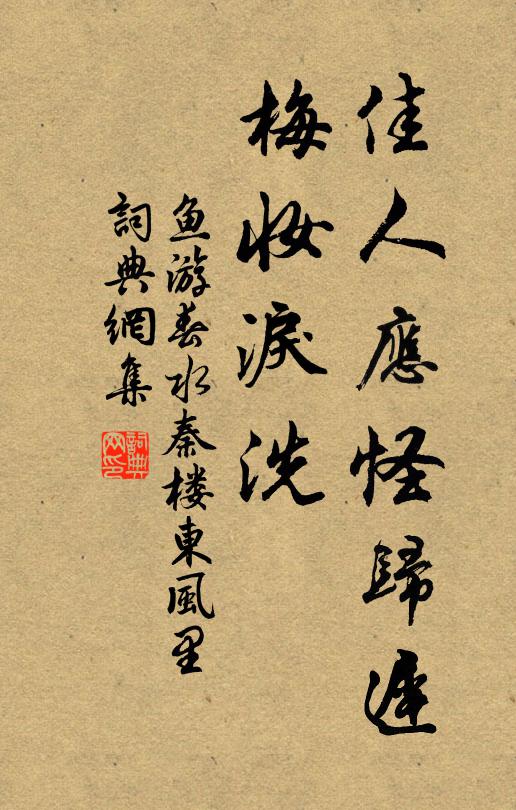 佳人應怪歸遲
梅妝淚洗
魚游春水秦楼東風里
詞典網集
詞典網印